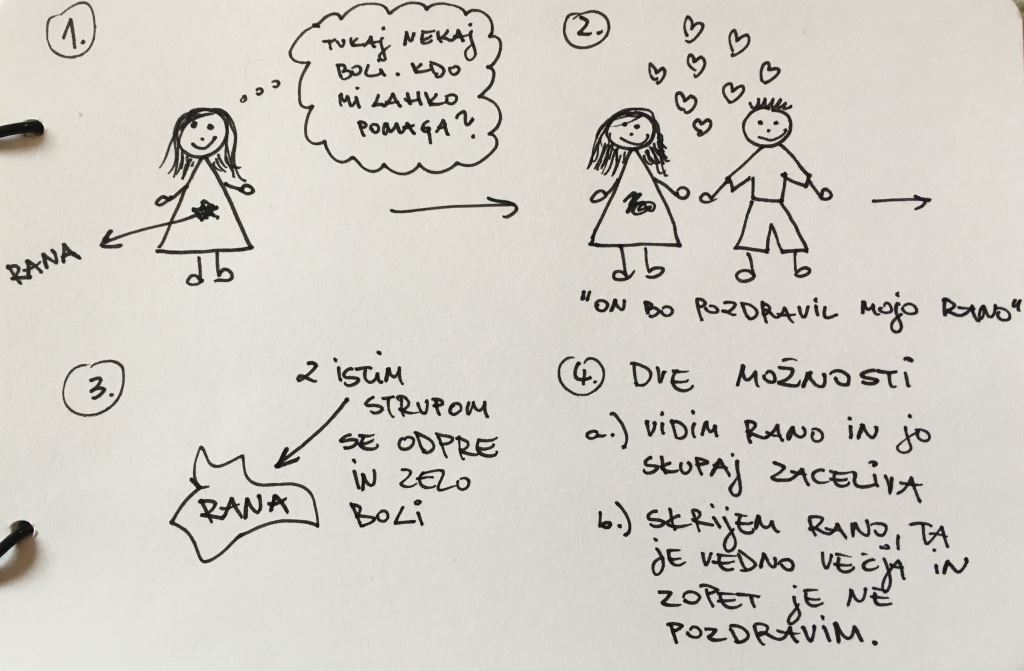 1.
TUKAJ NEKAJ
BOLI. KDO
MI LAHKO
POMAGA?
RANA
2.
"ON BO POZDRAVIL MOJO RANO"
3.
Z ISTIM
STRUPOM
SE ODPRE
IN ZELO
BOLI
RANA
4. DVE MOŽNOSTI
a.) VIDIM RANO IN JO
SKUPAJ ZACELIVA
b.) SKRIJEM RANO, TA
JE VEDNO VEČJA IN
ZOPET JE NE
POZDRAVIM.